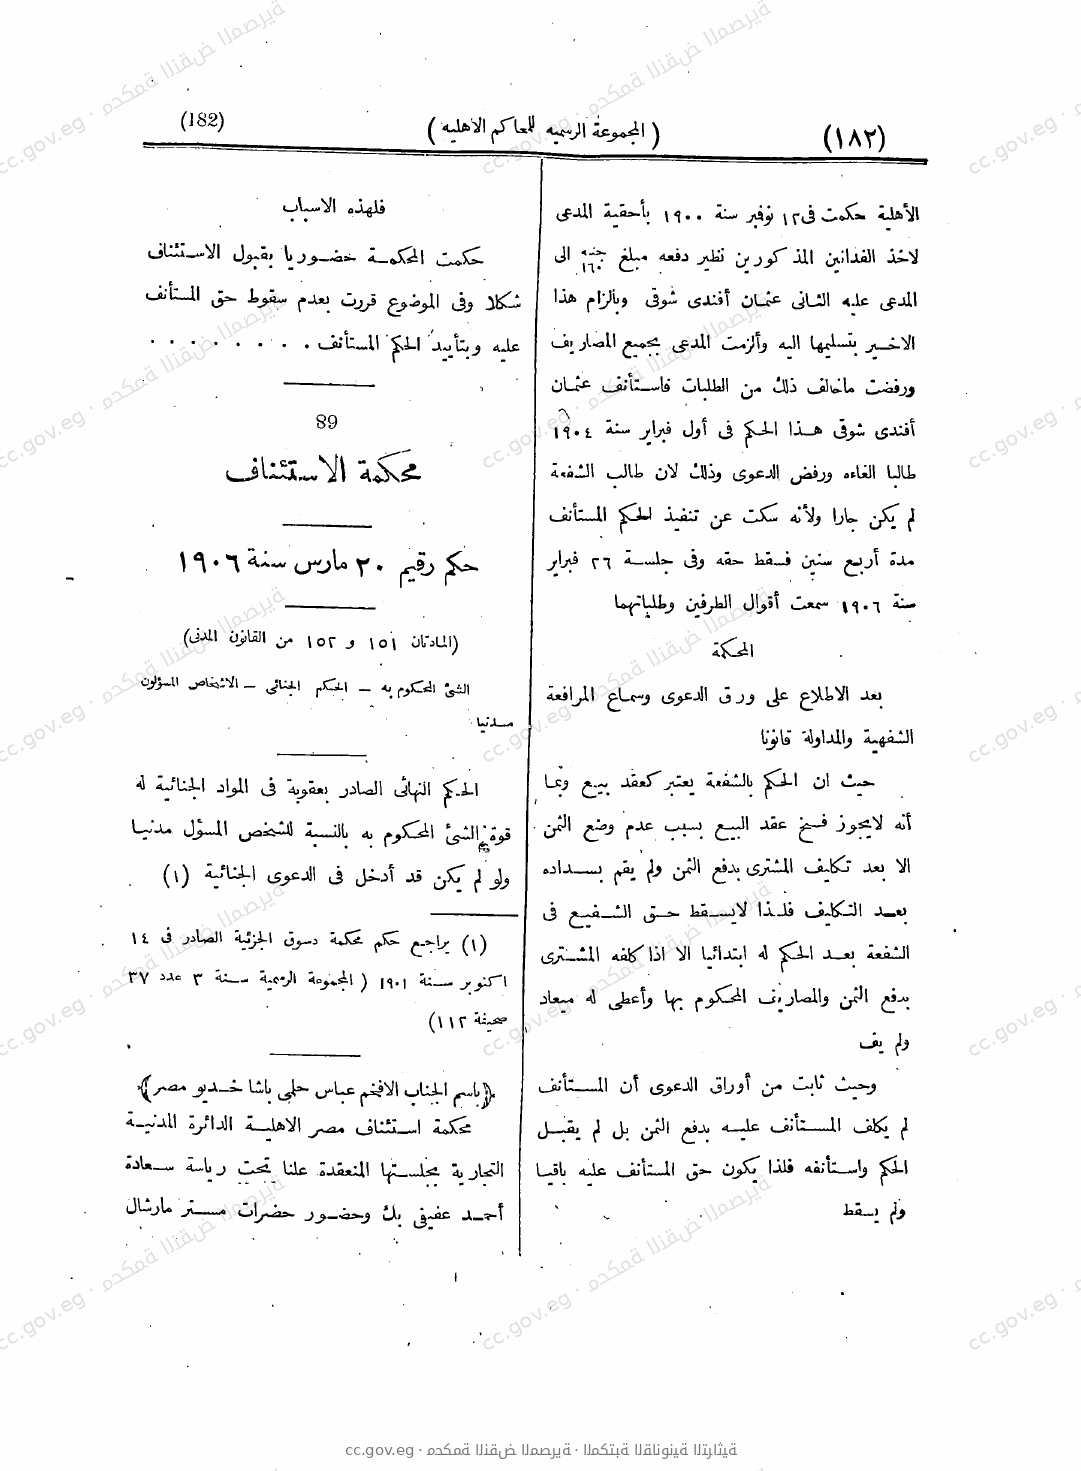 (١٨٢)
(المجموعة الرسميه للمحاكم الاهليه)
(182)
الأهلية حكمت فى ١٢ نوفبر سنة ١٩٠٠ بأحقية المدعى
لاخذ الفدانين المذكورين نظير دفعه مبلغ ١٦٠ جنيه الى
المدعى عليه الثانى عثمان أفندى شوقى وبالزام هذا
الاخير بتسليمها اليه وألزمت المدعى بجميع المصاريف
ورفضت ماخالف ذلك من الطلبات فاستأنف عثمان
أفندى شوقى هذا الحكم فى أول فبراير سنة ١٩٠٤
طالبا الغاءه ورفض الدعوى وذلك لان طالب الشفعة
لم يكن جارا ولأنه سكت عن تنفيذ الحكم المستأنف
مدة أربع سنين فسقط حقه وفى جلسة ٢٦ فبراير
سنة ١٩٠٦ سمعت أقوال الطرفين وطلباتهما
المحكمة
بعد الاطلاع على ورق الدعوى وسماع المرافعة
الشفهية والمداولة قانونا
حيث ان الحكم بالشفعة يعتبر كعقد بيع وبما
أنه لايجوز فسخ عقد البيع بسبب عدم وضع الثمن
الا بعد تكليف المشترى بدفع الثمن ولم يقم بسداده
بعد التكليف فلذا لايسقط حق الشفيع فى
الشفعة بعد الحكم له ابتدائيا الا اذا كلفه المشترى
بدفع الثمن والمصاريف المحكوم بها وأعطى له ميعاد
ولم يف
وحيث ثابت من أوراق الدعوى أن المستأنف
لم يكلف المستأنف عليه بدفع الثمن بل لم يقبل
الحكم واستأنفه فلذا يكون حق المستأنف عليه باقيا
ولم يسقط
فلهذه الاسباب
حكمت المحكمة حضوريا بقبول الاستئناف
شكلا وفى الموضوع قررت بعدم سقوط حق المستأنف
عليه وبتأييد الحكم المستأنف . . . . . . . .
89
محكمة الاستئناف
حكم رقيم ٢٠ مارس سنة ١٩٠٦
(المادتان ١٥١ و ١٥٢ من القانون المدنى)
الشئ المحكوم به – الحكم الجنائى – الاشخاص المسؤلون
مدنيا
الحكم النهائى الصادر بعقوبة فى المواد الجنائية له
قوة الشئ المحكوم به بالنسبة للشخص المسؤل مدنيا
ولو لم يكن قد أدخل فى الدعوى الجنائية (١)
(١) يراجع حكم محكمة دسوق الجزئية الصادر فى ١٤
اكتوبر سنة ١٩٠١ (المجموعة الرسمية سنة ٣ عدد ٣٧
صحيفة ١١٢)
﴿باسم الجناب الافخم عباس حلمى باشا خديو مصر﴾
محكمة استئناف مصر الاهلية الدائرة المدنية
التجارية بجلستها المنعقدة علنا تحت رياسة سعادة
أحمد عفيفى بك وحضور حضرات مستر مارشال
cc.gov.eg · محكمة النقض المصرية · المكتبة القانونية التراثية